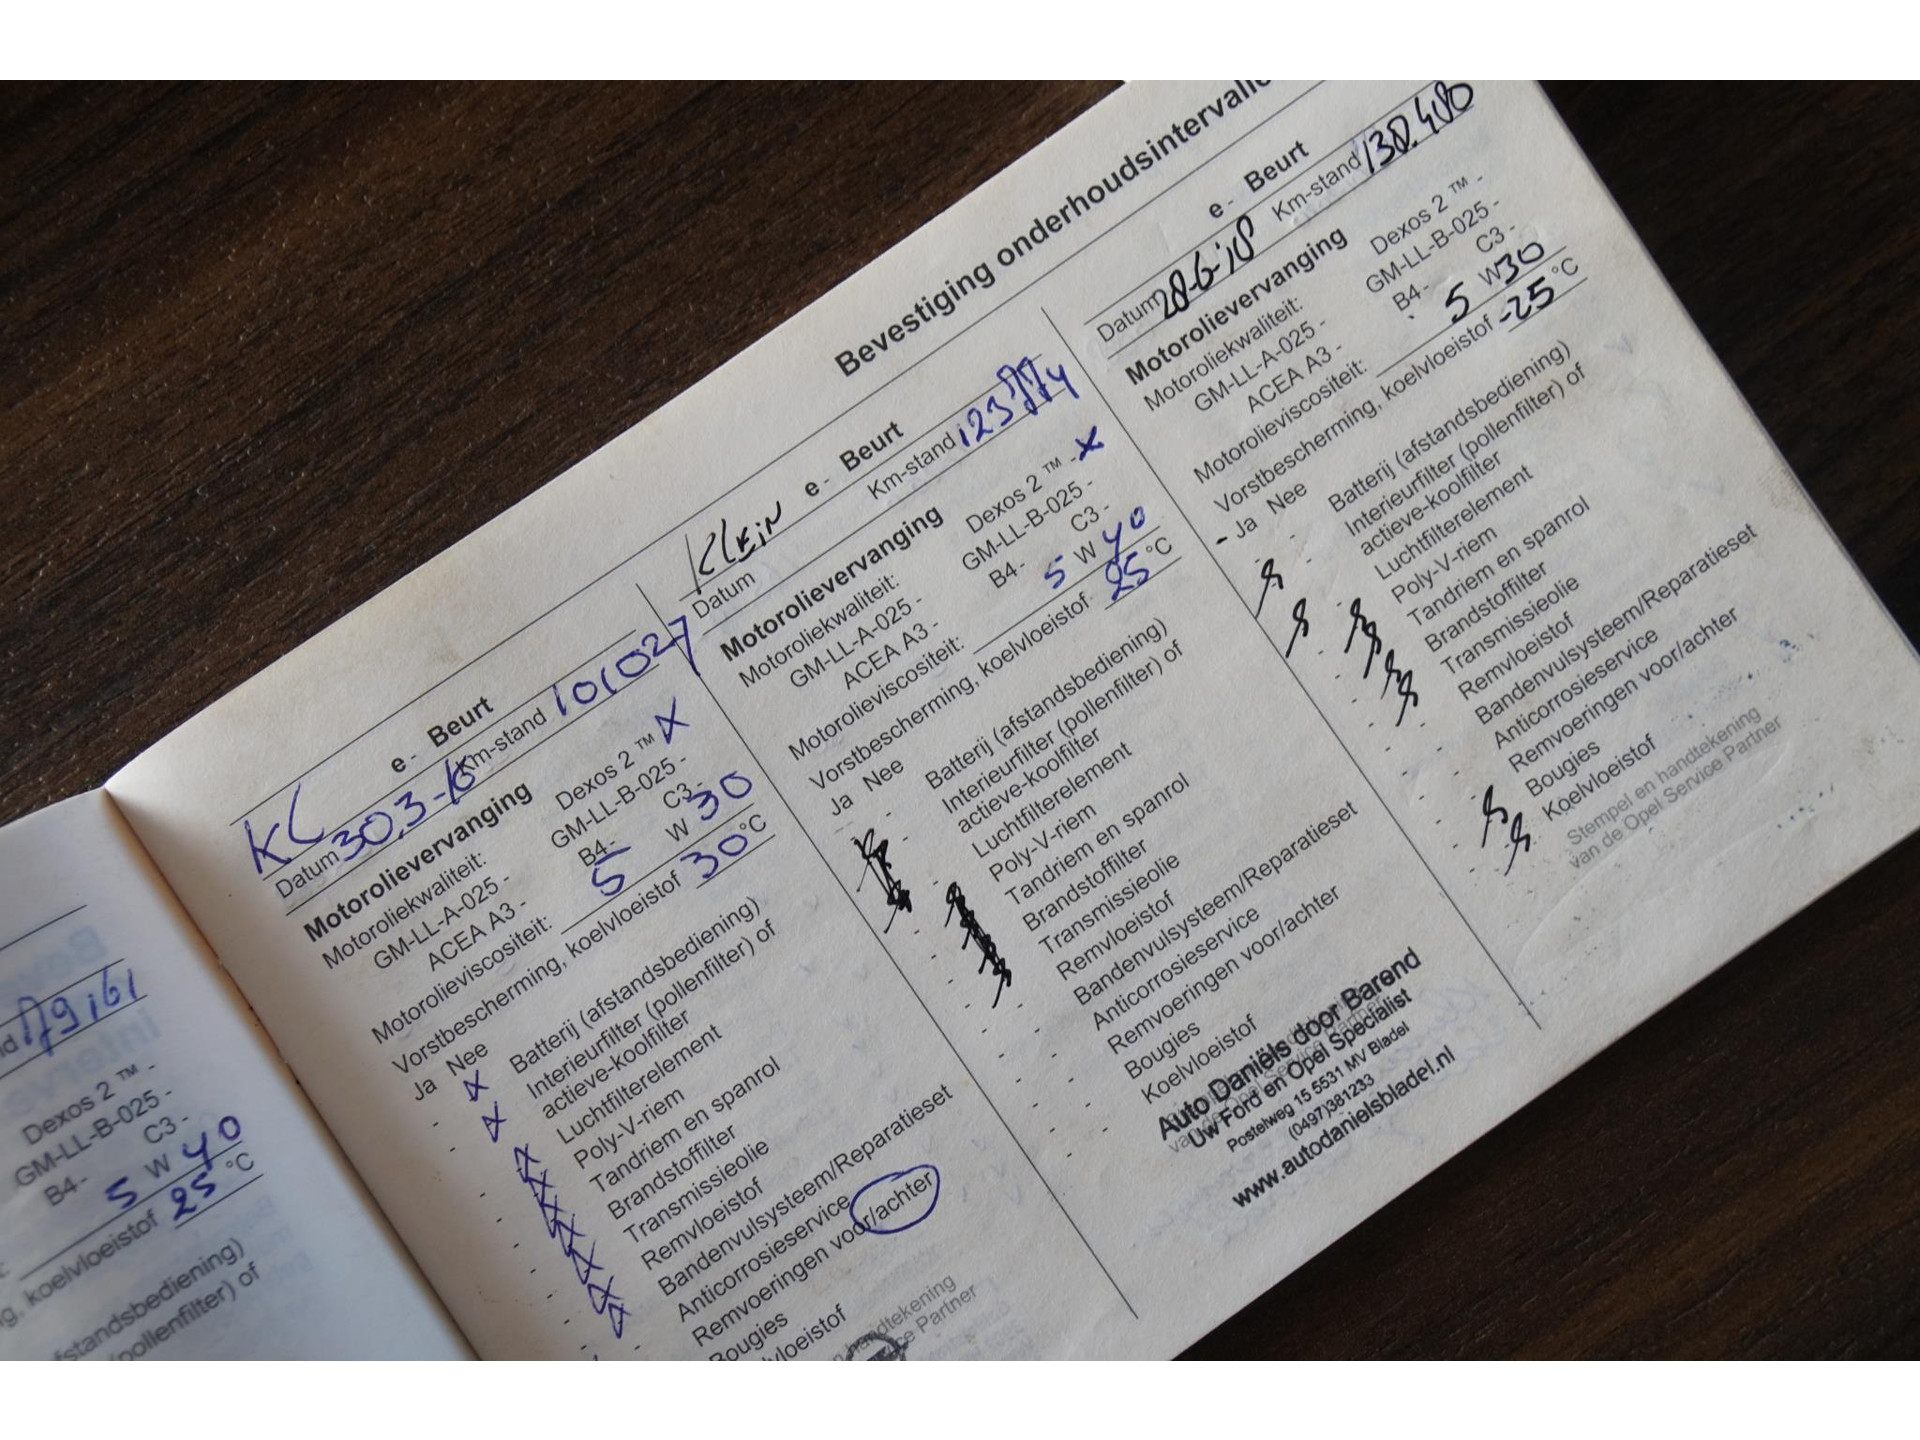 Bevestiging onderhoudsintervalle
Dexos 2 ™ -
GM-LL-B-025 -
C3 -
B4-
5 W 40
koelvloeistof 25 °C
afstandsbediening)
pollenfilter) of
KL
e- Beurt
Datum 30.3-16 Km-stand 101027
Motorolievervanging
Motoroliekwaliteit: Dexos 2 ™ x
GM-LL-A-025 - GM-LL-B-025 -
ACEA A3 - C3 -
B4-
Motorolieviscositeit: 5 W 30
Vorstbescherming, koelvloeistof 30 °C
Ja Nee
Batterij (afstandsbediening)
Interieurfilter (pollenfilter) of
actieve-koolfilter
Luchtfilterelement
Poly-V-riem
Tandriem en spanrol
Brandstoffilter
Transmissieolie
Remvloeistof
Bandenvulsysteem/Reparatieset
Anticorrosieservice
Remvoeringen voor/achter
Bougies
vloeistof
handtekening
Service Partner
Klein e- Beurt
Datum Km-stand
Motorolievervanging
Motoroliekwaliteit: Dexos 2 ™ - x
GM-LL-A-025 - GM-LL-B-025 -
ACEA A3 - C3 -
B4-
Motorolieviscositeit: 5 W 40
Vorstbescherming, koelvloeistof 25 °C
Ja Nee
Batterij (afstandsbediening)
Interieurfilter (pollenfilter) of
actieve-koolfilter
Luchtfilterelement
Poly-V-riem
Tandriem en spanrol
Brandstoffilter
Transmissieolie
Remvloeistof
Bandenvulsysteem/Reparatieset
Anticorrosieservice
Remvoeringen voor/achter
Bougies
Koelvloeistof
Auto Daniëls door Barend
Uw Ford en Opel Specialist
Postelweg 15 5531 MV Bladel
(0497)381233
www.autodanielsbladel.nl
e- Beurt
Datum 28-6-18 Km-stand 130.400
Motorolievervanging
Motoroliekwaliteit: Dexos 2 ™ -
GM-LL-A-025 - GM-LL-B-025 -
ACEA A3 - C3 -
B4-
Motorolieviscositeit: 5 W 30
Vorstbescherming, koelvloeistof -25 °C
Ja Nee
Batterij (afstandsbediening)
Interieurfilter (pollenfilter) of
actieve-koolfilter
Luchtfilterelement
Poly-V-riem
Tandriem en spanrol
Brandstoffilter
Transmissieolie
Remvloeistof
Bandenvulsysteem/Reparatieset
Anticorrosieservice
Remvoeringen voor/achter
Bougies
Koelvloeistof
Stempel en handtekening
van de Opel Service Partner